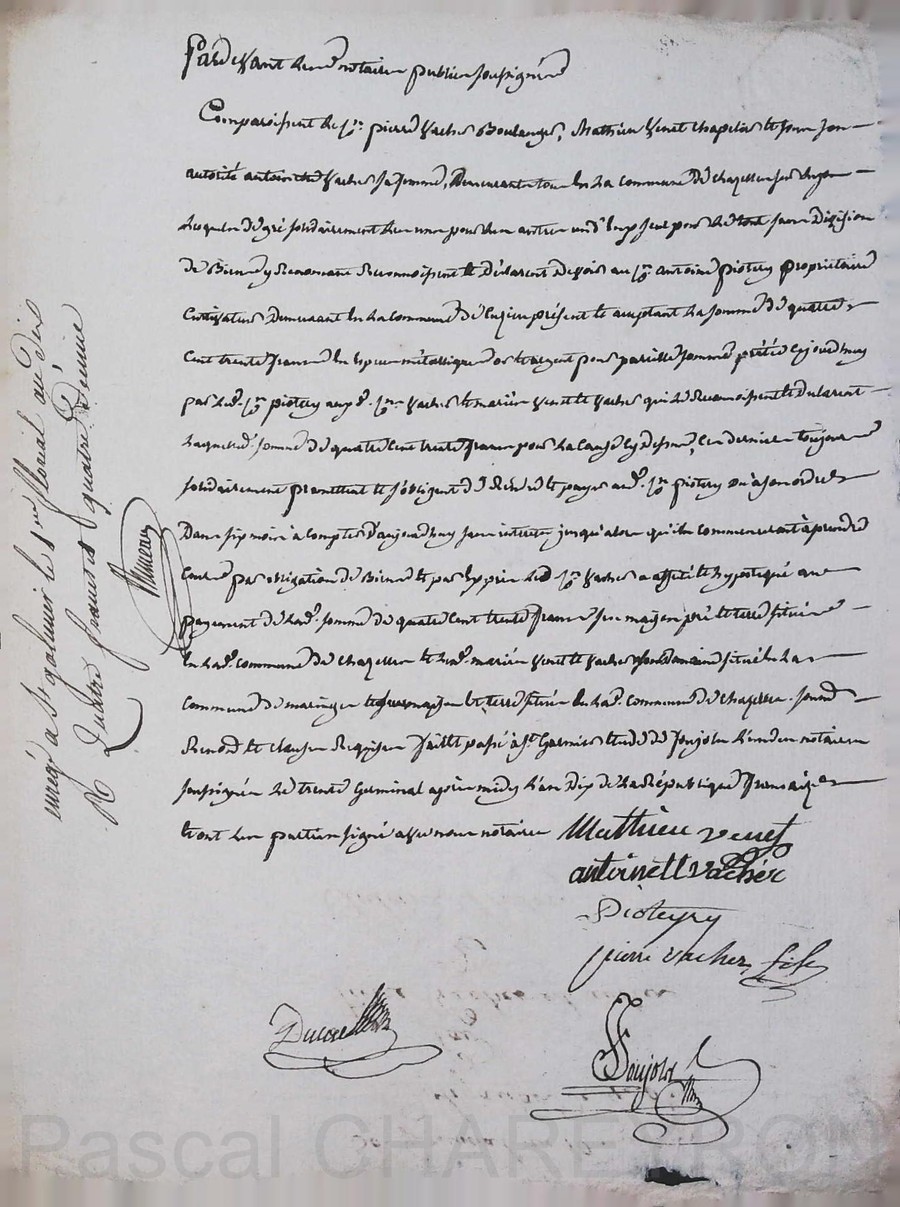 Pardevant les notaires publics soussignés
Comparoissent le sr. pierre vacher Boulanger, Mathieu Venet chapelier et sous son
autorité antoinette vacher sa femme, Demeurants tous en la commune de chazelles sur lyon
lesquels de gré solidairement les uns pour les autres un d'eux seul pour le tout sans Division
de Biens y Renonceans Reconnoissent et déclarent devoir au sr. antoine pioteyry propriétaire
Cultivateur Demeurant en la commune de Cuzieu présent et acceptant la somme de quatre
Cent trente francs en espèces métalliques or et argent pour pareille somme prêtée cejourdhuy
par led. sr. pioteyry auxd. srs. vacher et mariés Venet et vacher qui le Reconnoissent et declarent
laquelle d. somme de quatre cent trente francs pour la cause cy dessus, ces derniers toujours
solidairement promettent et s'obligent de Rendre et payer aud. sr. pioteyry ou à son ordre
Dans six mois à compter d'aujourdhuy sans intérêts jusqu'alors qu'ils commenceront à prendre
Cours par obligation de Biens et par exprès led. sr. vacher a affecté et hypotéqué au
payement de lad. somme de quatre cent trente francs ses maison pré et terre située
en lad. commune de chazelles et lesd. mariés Venet et vacher leur Domaine situé en la
Commune de maringes et leurs maison et terre située en lad. commune de chazelles. soumis.
Renonc. et clauses Requises fait et passé à st. Galmier étude de Soujols l'un des notaires
soussignés le trente Germinal après midy l'an Dix de la République française
et ont les parties signé avec nous notaires Mathieu venet
antoinett vachér
Pioteyry
pierre vacher fils
Ducreux
Soujols
enregé a st galmier le 1er floréal an dix
R quatre francs quatre décime